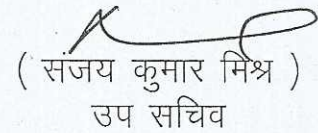 ( संजय कुमार मिश्र )
उप सचिव